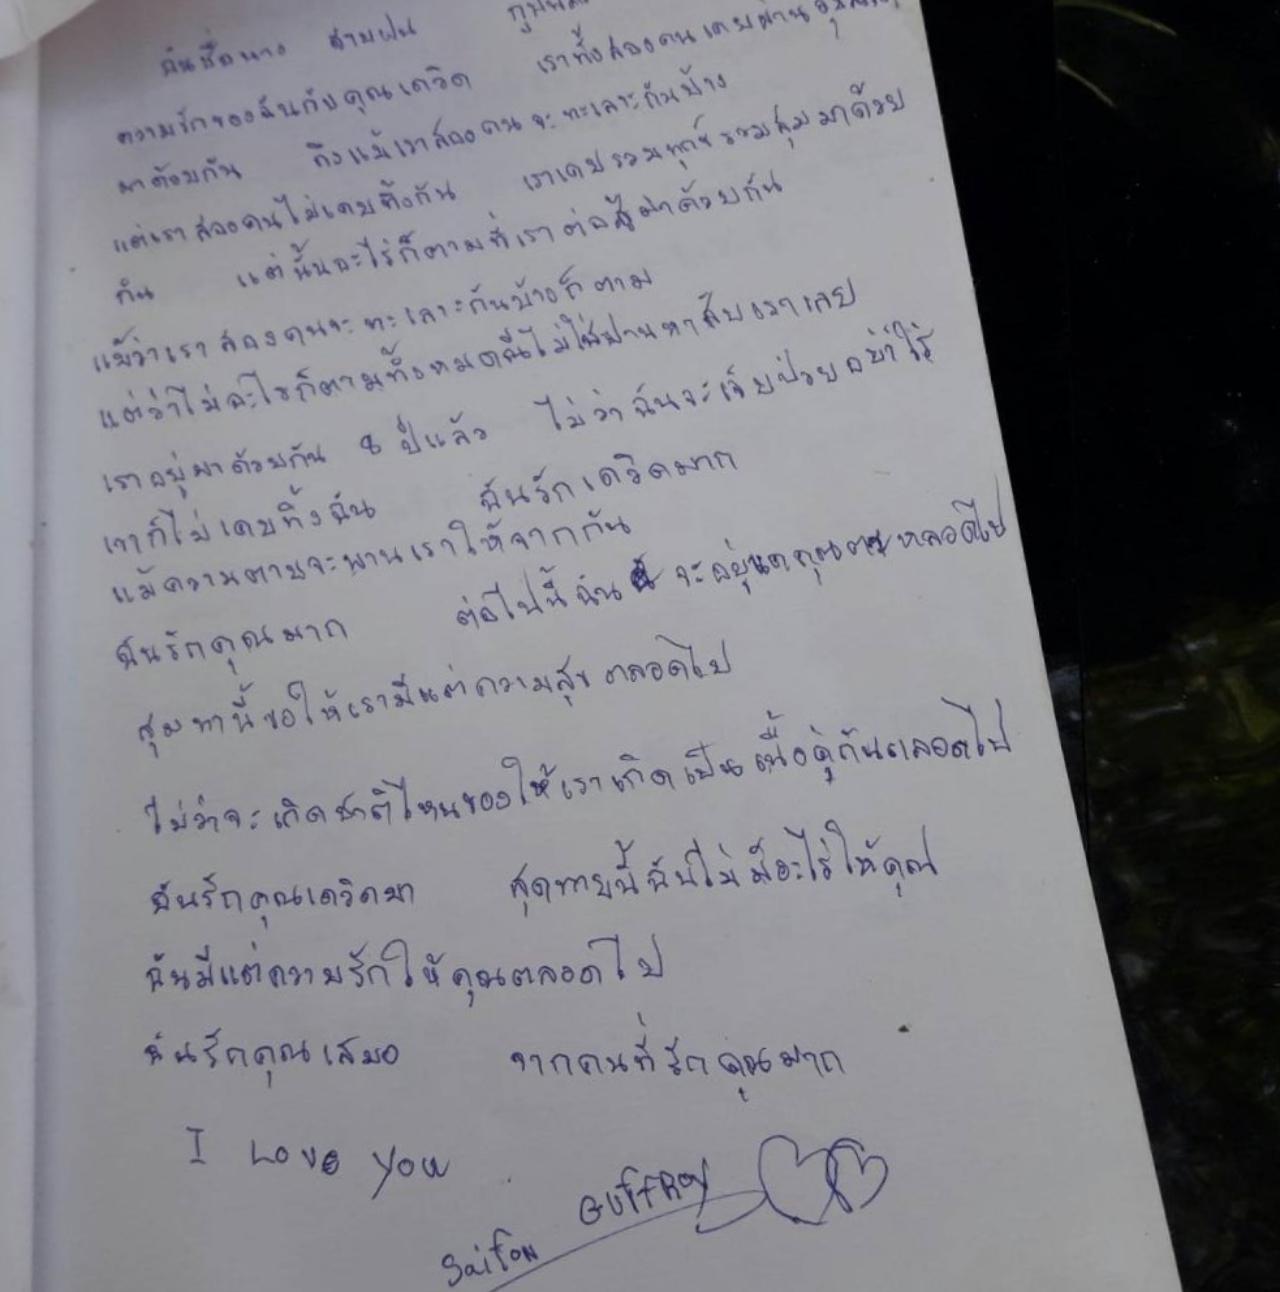 ฉันชื่อนาง สายฝน
ความรักของฉันกับคุณเดวิด เราทั้งสองคนเคยผ่าน
มาด้วยกัน ถึงแม้เราสองคนจะทะเลาะกันบ้าง
แต่เราสองคนไม่เคยทิ้งกัน เราเคยรวมทุกข์รวมสุมมาด้วย
กัน แต่นั้นอะไร่ก็ตามที่เราต่อสู้มาด้วยกัน
แม้ว่าเราสองคนจะทะเลาะกันบ้างก็ตาม
แต่ว่าไม่อะไรก็ตามทั้งหมดนี้ไม่ใช่ปานหาสับเราเลย
เราอยู่มาด้วยกัน 8 ปีแล้ว ไม่ว่าฉันจะเจ็บป่วยอย่าไร้
เขาก็ไม่เคยทิ้งฉัน ฉันรักเดวิดมาก
แม้ความตายจะพานเราให้จากกัน
ฉันรักคุณมาก ต่อไปนี้ฉัน จะอยู่แดคุณตลอดไป
สุมทานี้ขอให้เรามีแต่ความสุขตลอดไป
ไม่ว่าจะเกิดชาติไหนของให้เราเกิดเป็นเนื้อคู่กันตลอดไป
ฉันรักคุณเดวิดมา สุดทายนี้ฉันไม่มีอะไร่ให้คุณ
ฉันมีแต่ความรักให้คุณตลอดไป
ฉันรักคุณเสมอ จากคนที่รักคุณมาก
I Love You
Saifon Guffroy